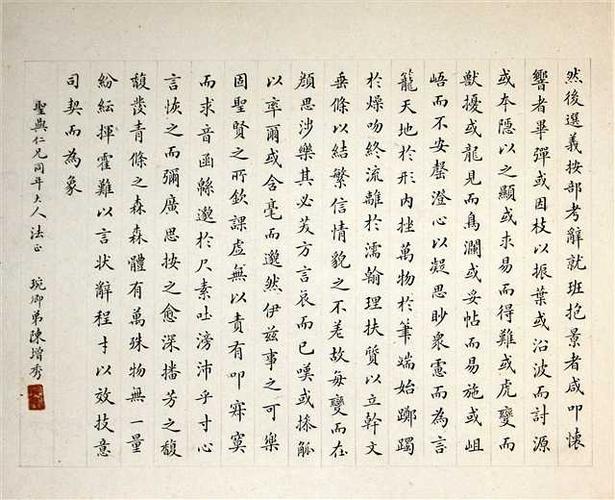 然後選義按部考辭就班抱景者咸叩懷
響者畢彈或因枝以振葉或沿波而討源
或本隱以之顯或求易而得難或虎變而
獸擾或龍見而鳥瀾或妥帖而易施或岨
峿而不安罄澄心以凝思眇衆慮而為言
籠天地於形內挫萬物於筆端始躑躅
於燥吻終流離於濡翰理扶質以立幹文
垂條以結繁信情貌之不差故每變而在
顏思涉樂其必笑方言哀而已嘆或操觚
以率爾或含毫而邈然伊茲事之可樂
固聖賢之所欽課虛無以責有叩寂寞
而求音函緜邈於尺素吐滂沛乎寸心
言恢之而彌廣思按之愈深播芳之馥
馥發青條之森森體有萬殊物無一量
紛紜揮霍難以言狀辭程才以效技意
司契而為象
聖與仁兄同年大人 法正 琬卿弟陳增秀